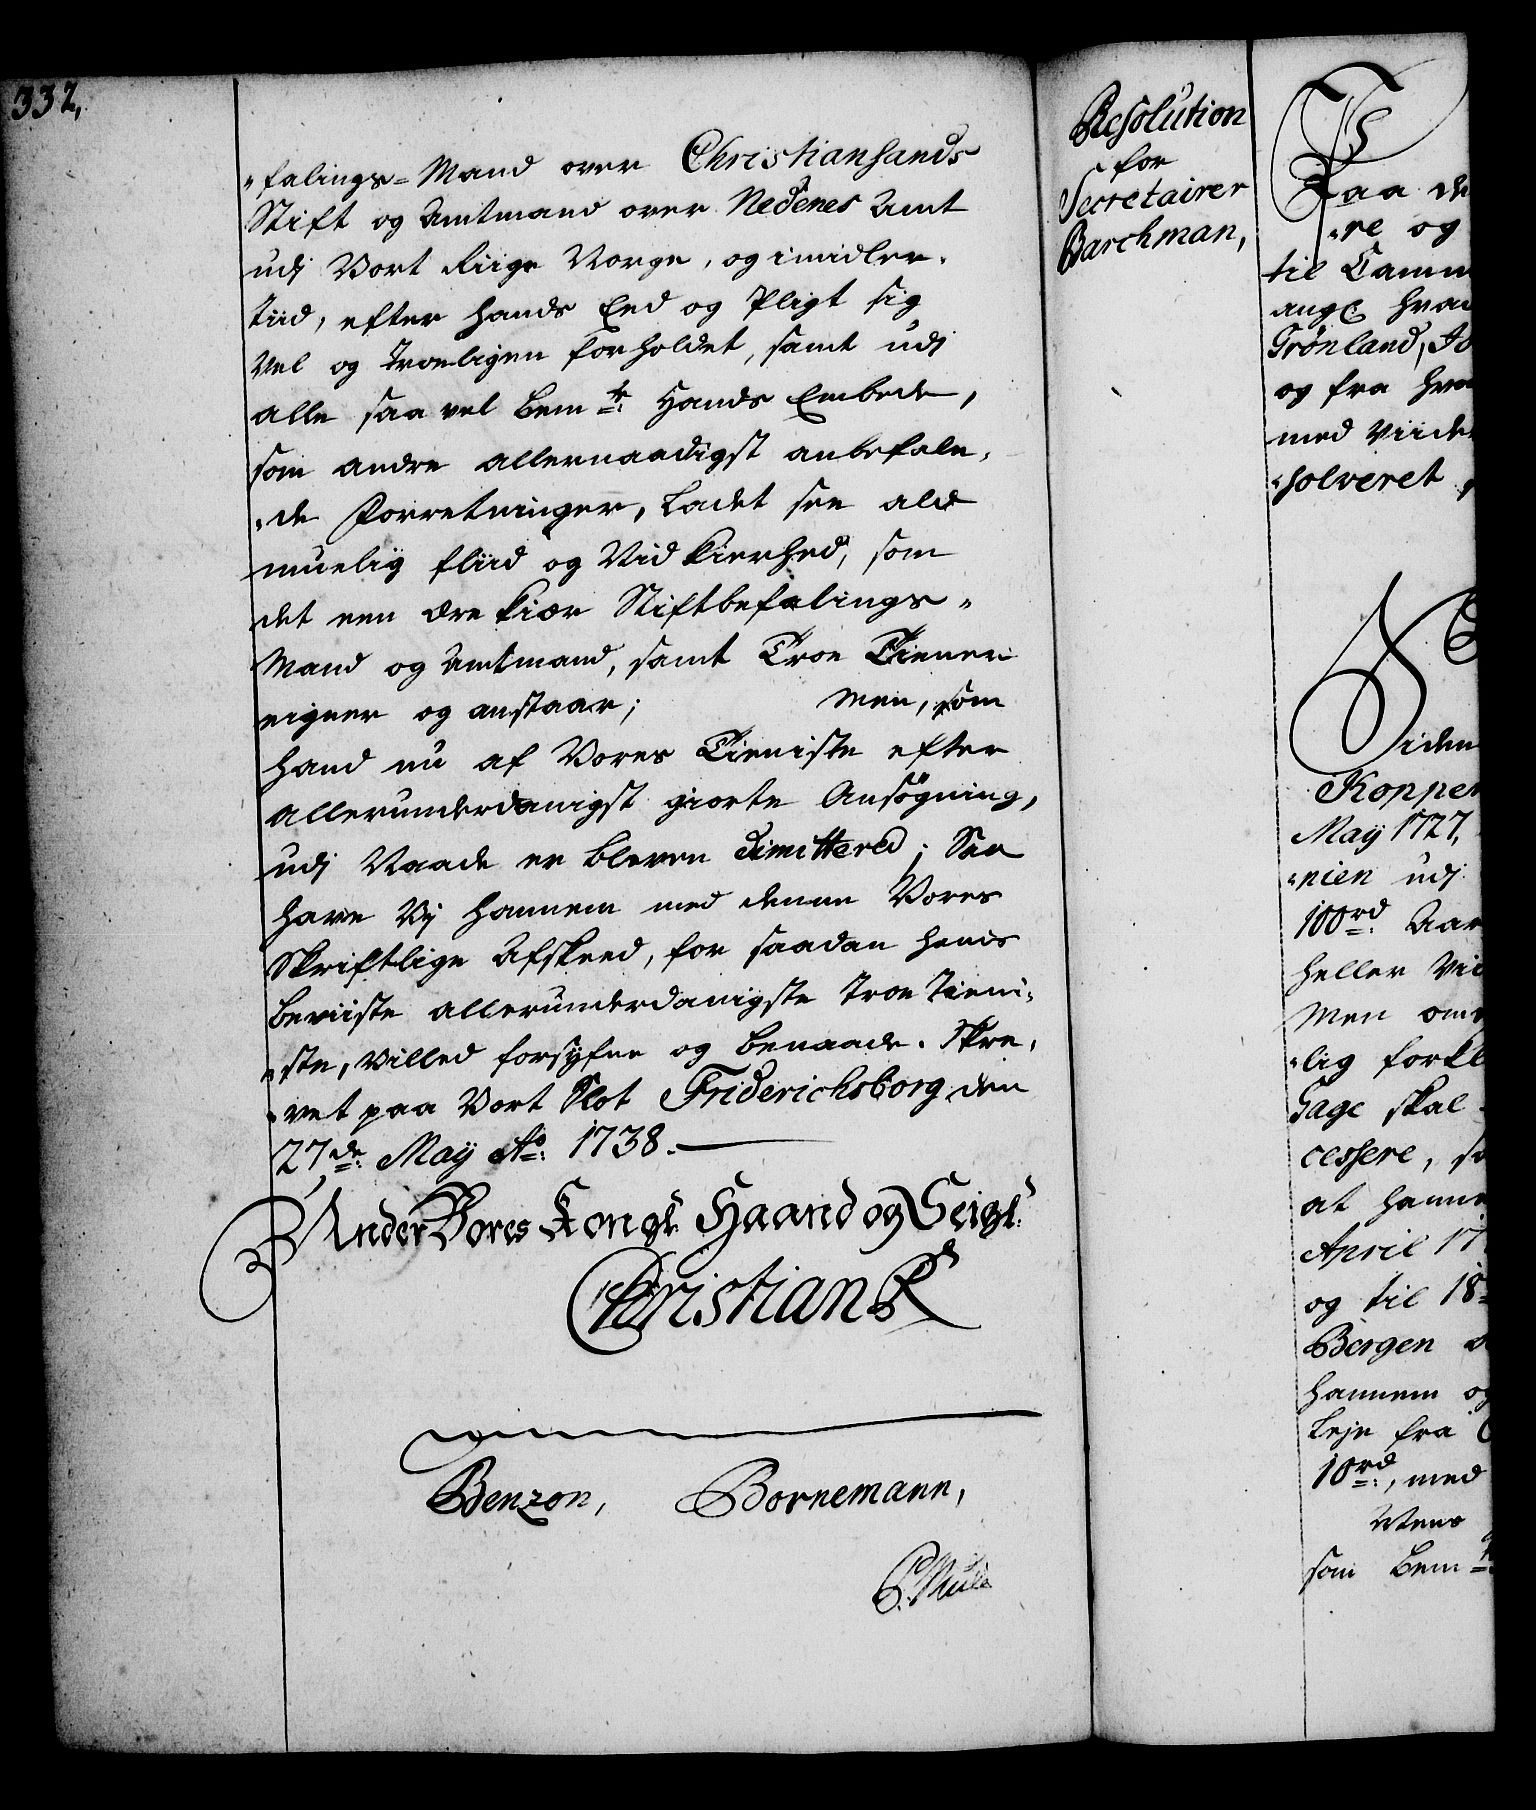 332,
„falings=Mand over Christiansands
Stift og Amtmand over Nedenes Amt
udj Vort Riige Norge, og imidler„
tiid, efter hands Eed og Pligt sig
Vel og troeligen forholdet, samt udj
alle saa vel bemte: Hands Embede,
som andre allernaadigst anbefale„
„de Forretninger, ladet see ald
muelig fliid og Vidkierhed, som
det een ærekiær Stiftbefalings„
Mand og Amtmand, samt Troe Tiener
eigner og anstaar; Men, som
hand nu af Vores Tieniste efter
allerunderdanigst giorte Ansøgning,
udj Naade er bleven dimittered; Saa
have Vij hannem med denne Vores
Skriftlige Afskeed, for saadan hands
beviiste allerunderdanigste troe Tieni„
„ste, villed forsyfne og benaade. Skre„
„vet paa Vort Slot Friderichsborg den
27de: May Ao: 1738.
Under Vores Kongl. Haand og Seigl.
Christian R
Benzon, Bornemann,
Resolution
for
Secretairer
Barchman,
Paa de
„re og
til Camm
ang: hvad
Grønland, Is
og fra hva
med viide
„solveret
Siden
Koppe
May 1727,
„nien udj
100rd: Aar
heller vi
Men om
„lig forkl
Gage skal
cessere, s
at hanne
April 17
og til 18
Bergen
hannem og
leje fra
10rd:, med
som bem